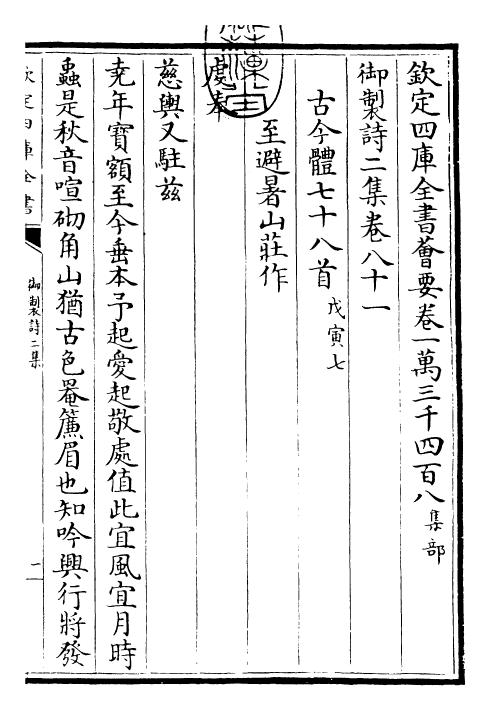 欽定四庫全書薈要卷一萬三千四百八 集部
御製詩二集卷八十一
古今體七十八首 戊寅七
至避暑山莊作
䖍奉
慈輿又駐兹
堯年寳額至今垂本予起愛起敬處值此宜風宜月時
蟲是秋音喧砌角山猶古色罨簾眉也知吟興行將發
欽定四庫全書
御製詩二集
一